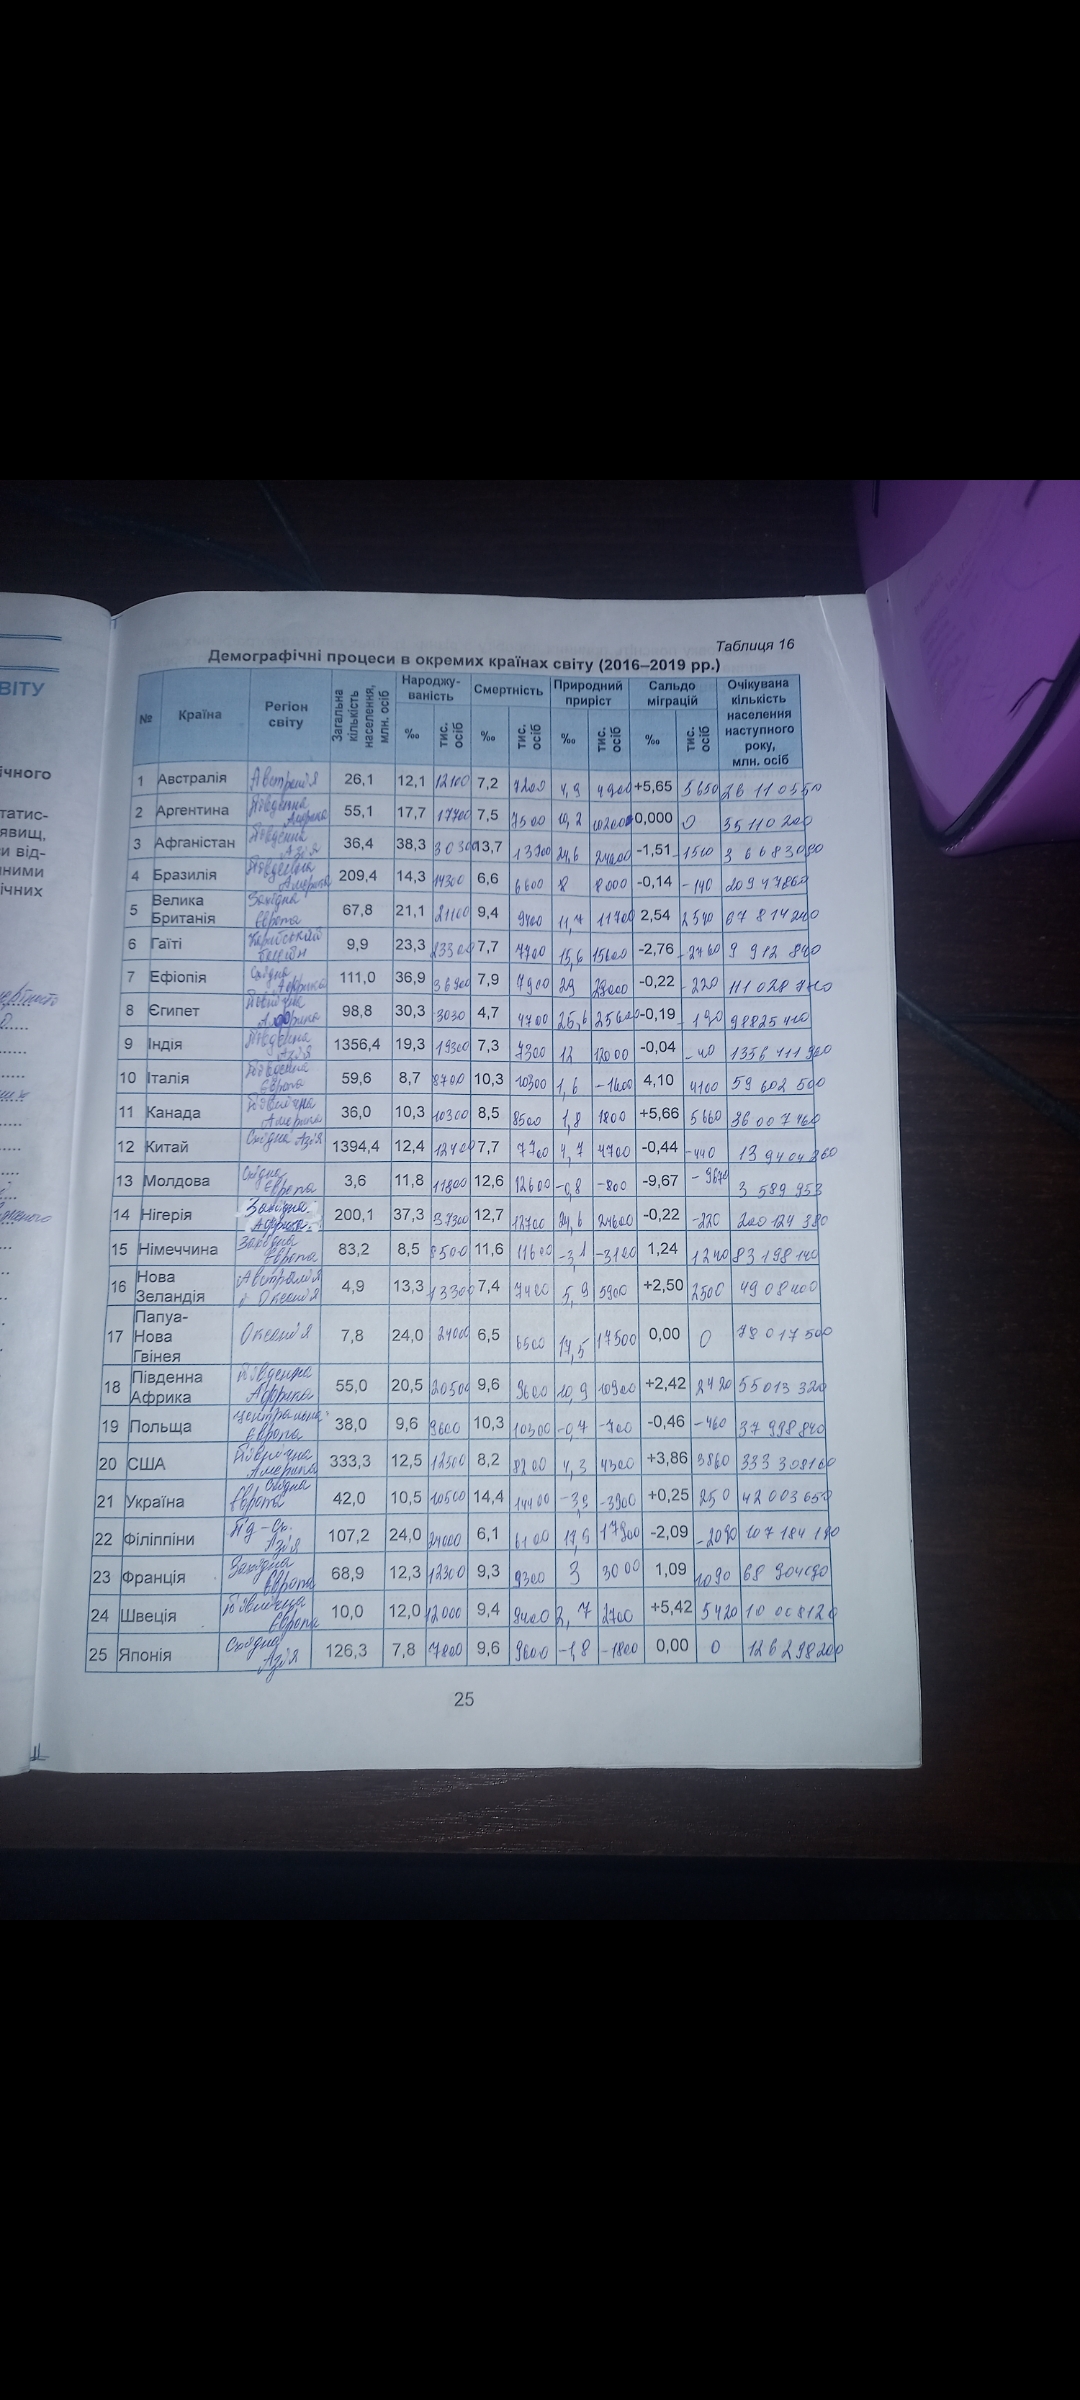 Таблиця 16
Демографічні процеси в окремих країнах світу (2016–2019 рр.)
ВІТУ
ічного
татис-
явищ,
и від-
нними
ічних
№ Країна Регіон світу Загальна кількість населення, млн. осіб Народжу-ваність Смертність Природний приріст Сальдо міграцій Очікувана кількість населення наступного року, млн. осіб
‰ тис. осіб ‰ тис. осіб ‰ тис. осіб ‰ тис. осіб
1 Австралія Австралія 26,1 12,1 12100 7,2 7200 4,9 4900 +5,65 5650 26110550
2 Аргентина Південна Америка 55,1 17,7 17700 7,5 7500 10,2 10200 0,000 0 35110200
3 Афганістан Південна Азія 36,4 38,3 13,7 13700 24,6 -1,51
4 Бразилія Південна Америка 209,4 14,3 14300 6,6 6600 8 8000 -0,14 -140 20947860
5 Велика Британія Західна Європа 67,8 21,1 21100 9,4 9400 11,7 11700 2,54 2540 67814240
6 Гаїті Карибський 9,9 23,3 23300 7,7 7700 15,6 15600 -2,76 -2760 9 912 840
7 Ефіопія Східна Африка 111,0 36,9 36900 7,9 7900 29 29000 -0,22 -220
8 Єгипет Північна Африка 98,8 30,3 3030 4,7 4700 25,6 25600 -0,19 -190 98825410
9 Індія Південна Азія 1356,4 19,3 19300 7,3 7300 12 12000 -0,04 -40 1356 111 960
10 Італія Європа 59,6 8,7 8700 10,3 10300 1,6 -1600 4,10 4100 59 602 500
11 Канада Північна Америка 36,0 10,3 10300 8,5 8500 1,8 1800 +5,66 5660 36 007 460
12 Китай Східна Азія 1394,4 12,4 12400 7,7 7700 4,7 4700 -0,44 -440
13 Молдова Східна Європа 3,6 11,8 11800 12,6 12600 -0,8 -800 -9,67 -9670 3 589 953
14 Нігерія Західна Африка 200,1 37,3 37300 12,7 12700 24,6 24600 -0,22 -220 200 124 380
15 Німеччина Західна Європа 83,2 8,5 8500 11,6 11600 -3,1 -3100 1,24 1240 83198140
16 Нова Зеландія Австралія і Океанія 4,9 13,3 13300 7,4 7400 5,9 5900 +2,50 2500 4908400
17 Папуа-Нова Гвінея Океанія 7,8 24,0 24000 6,5 6500 17,5 17500 0,00 0 78017500
18 Південна Африка Південна Африка 55,0 20,5 20500 9,6 9600 10,9 10900 +2,42 2420 55013320
19 Польща Центральна Європа 38,0 9,6 9600 10,3 10300 -0,7 -700 -0,46 -460 37 998 840
20 США Північна Америка 333,3 12,5 12500 8,2 8200 4,3 4300 +3,86 3860 333 308160
21 Україна Східна Європа 42,0 10,5 10500 14,4 14400 -3,9 -3900 +0,25 250 42003650
22 Філіппіни Азія 107,2 24,0 24000 6,1 6100 17,9 17900 -2,09 -2090
23 Франція Західна Європа 68,9 12,3 12300 9,3 9300 3 3000 1,09 1090
24 Швеція Північна Європа 10,0 12,0 12000 9,4 9400 2,7 2700 +5,42 5420 10 008120
25 Японія Східна Азія 126,3 7,8 7800 9,6 9600 -1,8 -1800 0,00 0 126298200
25